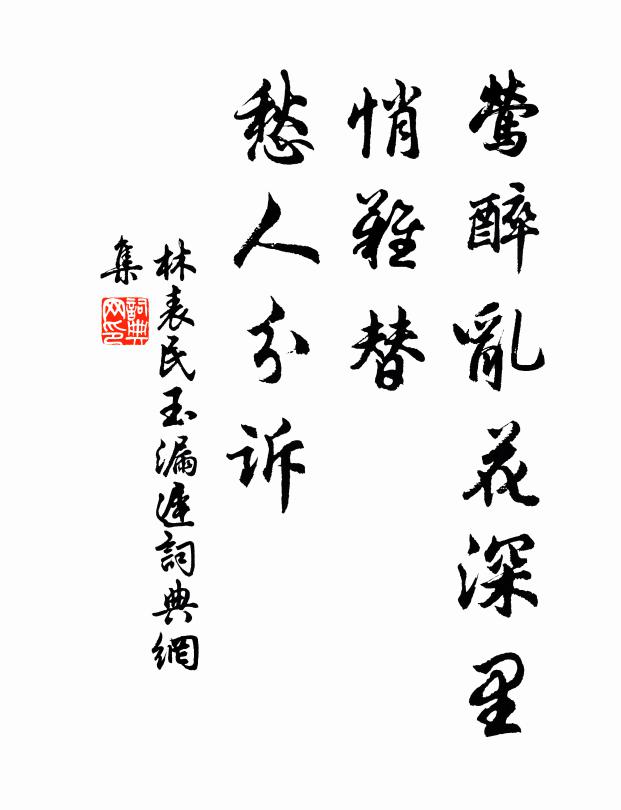 鶯醉亂花深里
悄難替
愁人分訴
林表民玉漏遲詞典網
集
詞典
网印